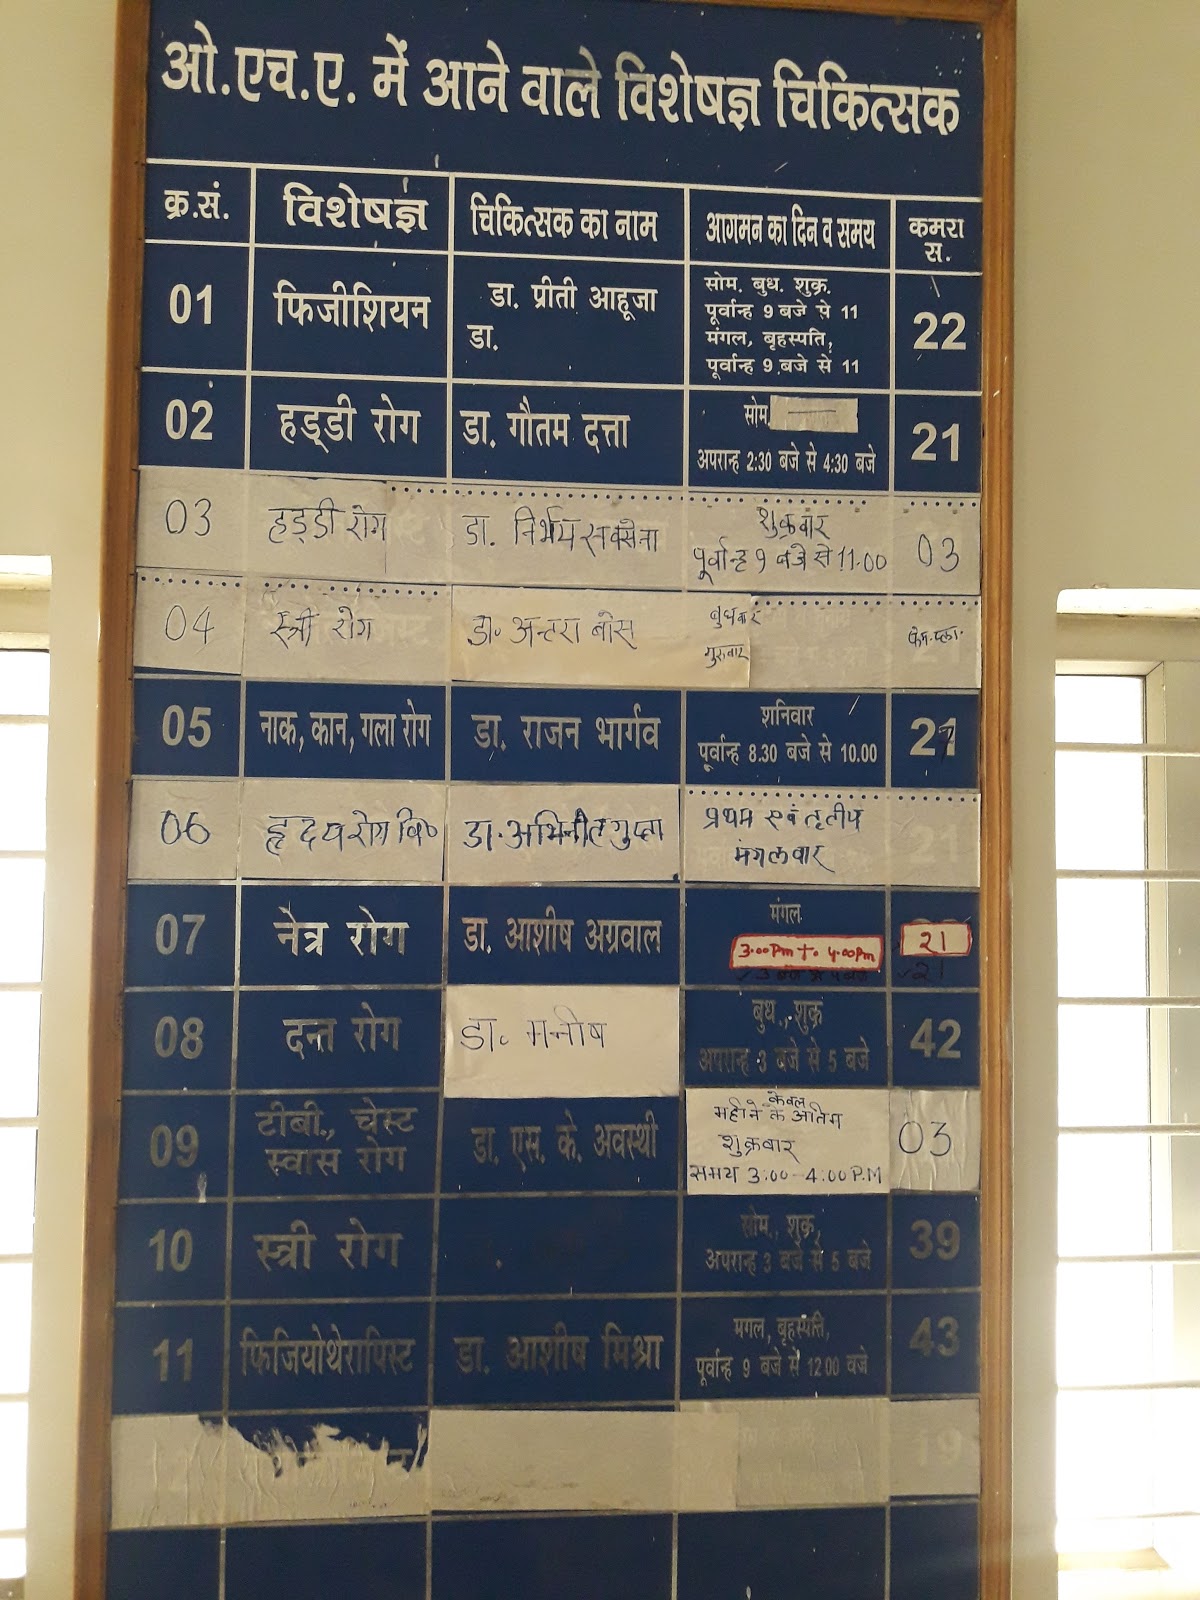 ओ.एच.ए. में आने वाले विशेषज्ञ चिकित्सक
क्र.सं. विशेषज्ञ चिकित्सक का नाम आगमन का दिन व समय कमरा स.
01 फिजीशियन डा. प्रीती आहूजा डा. सोम. बुध. शुक्र.
पूर्वान्ह 9 बजे से 11
मंगल, बृहस्पति,
पूर्वान्ह 9 बजे से 11
22
02 हड्डी रोग डा. गौतम दत्ता सोम.
अपरान्ह 2:30 बजे से 4:30 बजे
21
03 हड्डी रोग डा. निर्भय सक्सेना शुक्रवार
पूर्वान्ह 9 बजे से 11.00
03
04 स्त्री रोग डा. अन्तरा बोस बुधवार
गुरुवार
05 नाक, कान, गला रोग डा. राजन भार्गव शनिवार
पूर्वान्ह 8.30 बजे से 10.00
06 हृदय रोग वि० डा. अभिनीत गुप्ता प्रथम एवं तृतीय
मंगलवार
21
07 नेत्र रोग डा. आशीष अग्रवाल मंगल
3.00Pm to 4.00Pm
21
21
08 दन्त रोग डा. मनीष बुध., शुक्र
अपरान्ह 3 बजे से 5 बजे
42
09 टीबी., चेस्ट
स्वास रोग
डा. एस. के. अवस्थी केवल
महीने के अंतिम
शुक्रबार
समय 3:00-4:00P.M
03
10 स्त्री रोग सोम., शुक्र,
अपरान्ह 3 बजे से 5 बजे
39
11 फिजियोथेरापिस्ट डा. आशीष मिश्रा मगल, बृहस्पति,
पूर्वान्ह 9 बजे से 12.00 बजे
43
12 19